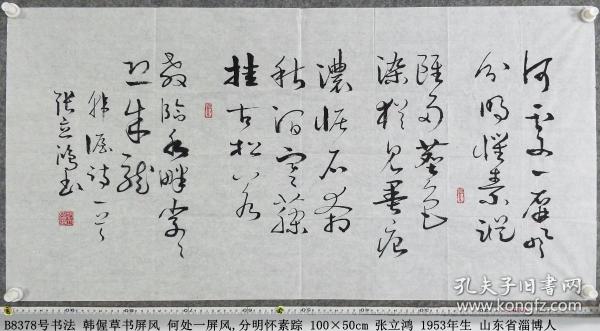 何处一屏风
分明怀素踪
虽多尘色
染犹见墨痕
浓怪石奔
秋涧寒藤
挂古松若
教临水畔字々
恐成龙
韩偓诗一首
张立鸿书
孔夫子旧书网
B8378号书法 韩偓草书屏风 何处一屏风,分明怀素踪 100×50cm 张立鸿 1953年生 山东省淄博人